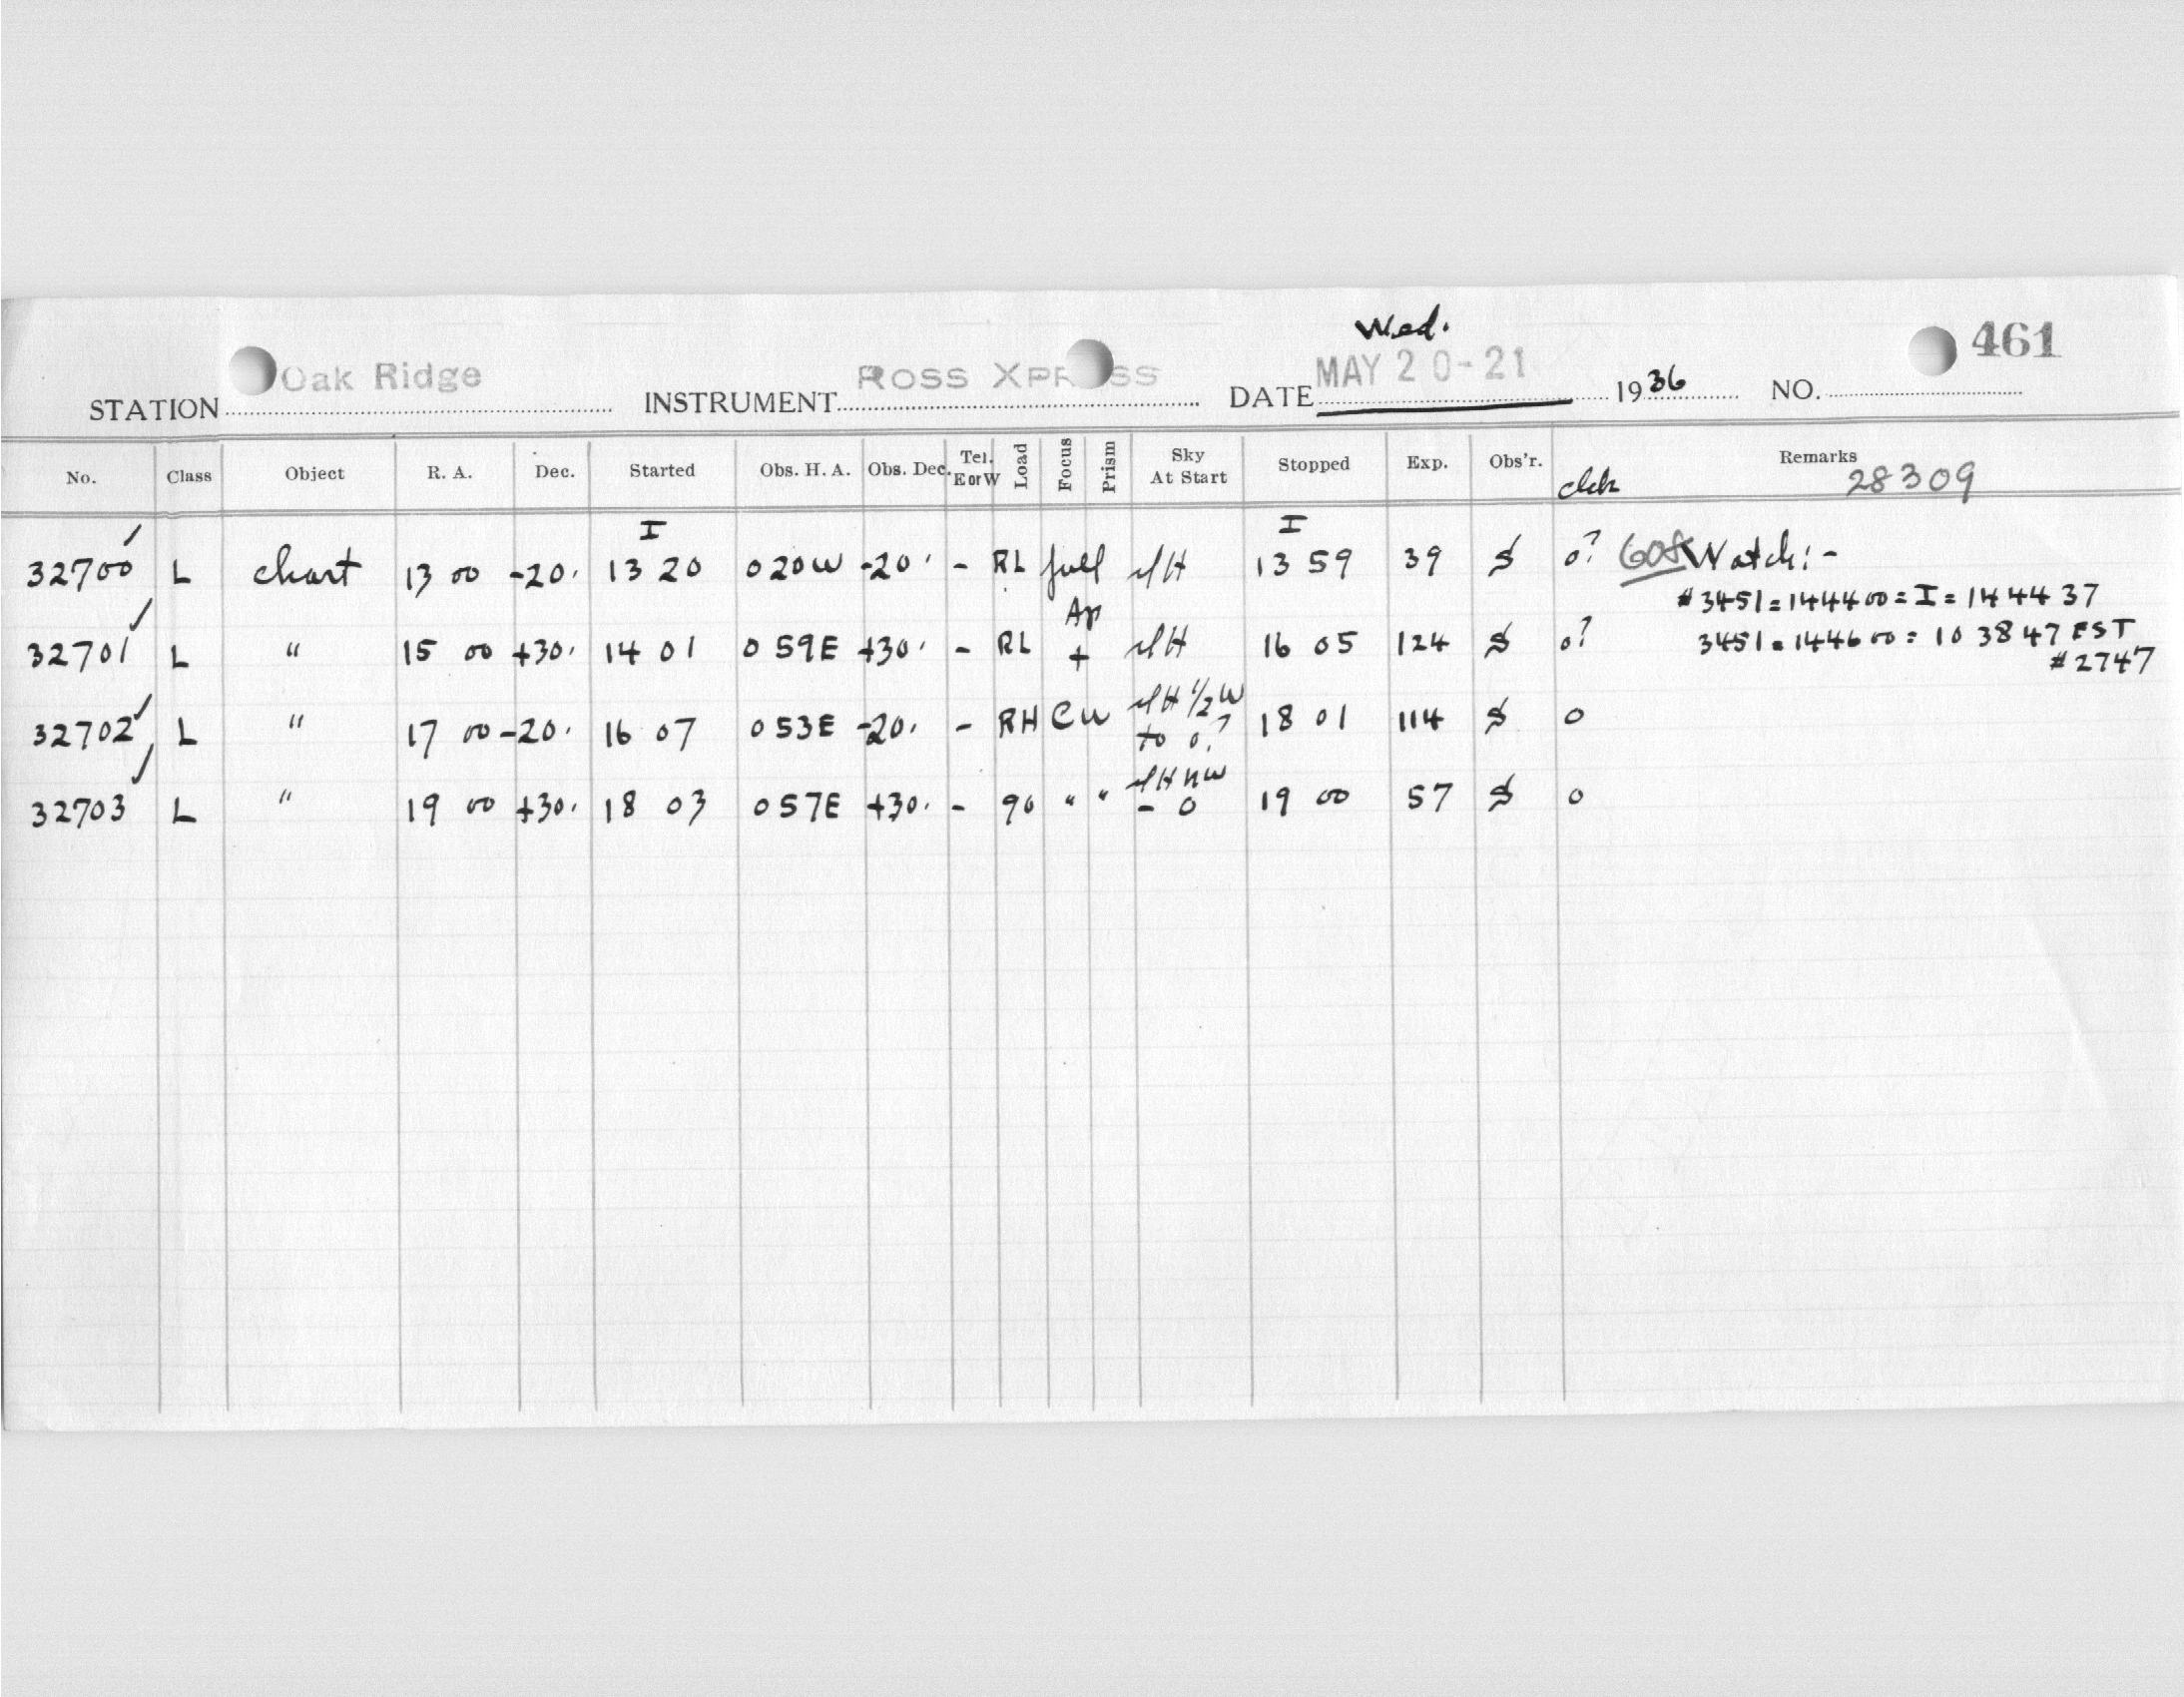 Wed.
STATION Oak Ridge INSTRUMENT ROSS XPRESS DATE MAY 20-21 1936 NO. 461
No. Class Object R. A. Dec. Started Obs. H. A. Obs. Dec. Tel. E or W Load Focus Prism Sky At Start Stopped Exp. Obs'r. Remarks
28309
I I
32700 L chart 13 00 -20. 13 20 0 20W -20. - RL full 13 59 39 S 0? Watch:-
#3451 = 14 44 00 = I = 14 44 37
Ap
32701 L " 15 00 +30. 14 01 0 59E +30. - RL + 16 05 124 S 0? 3451 = 14 46 00 = 10 38 47 EST
#2747
32702 L " 17 00 -20. 16 07 0 53E -20. - RH Cu 1/2 W to 0? 18 01 114 S 0
32703 L " 19 00 +30. 18 03 0 57E +30. - 90 " " NW - 0 19 00 57 S 0